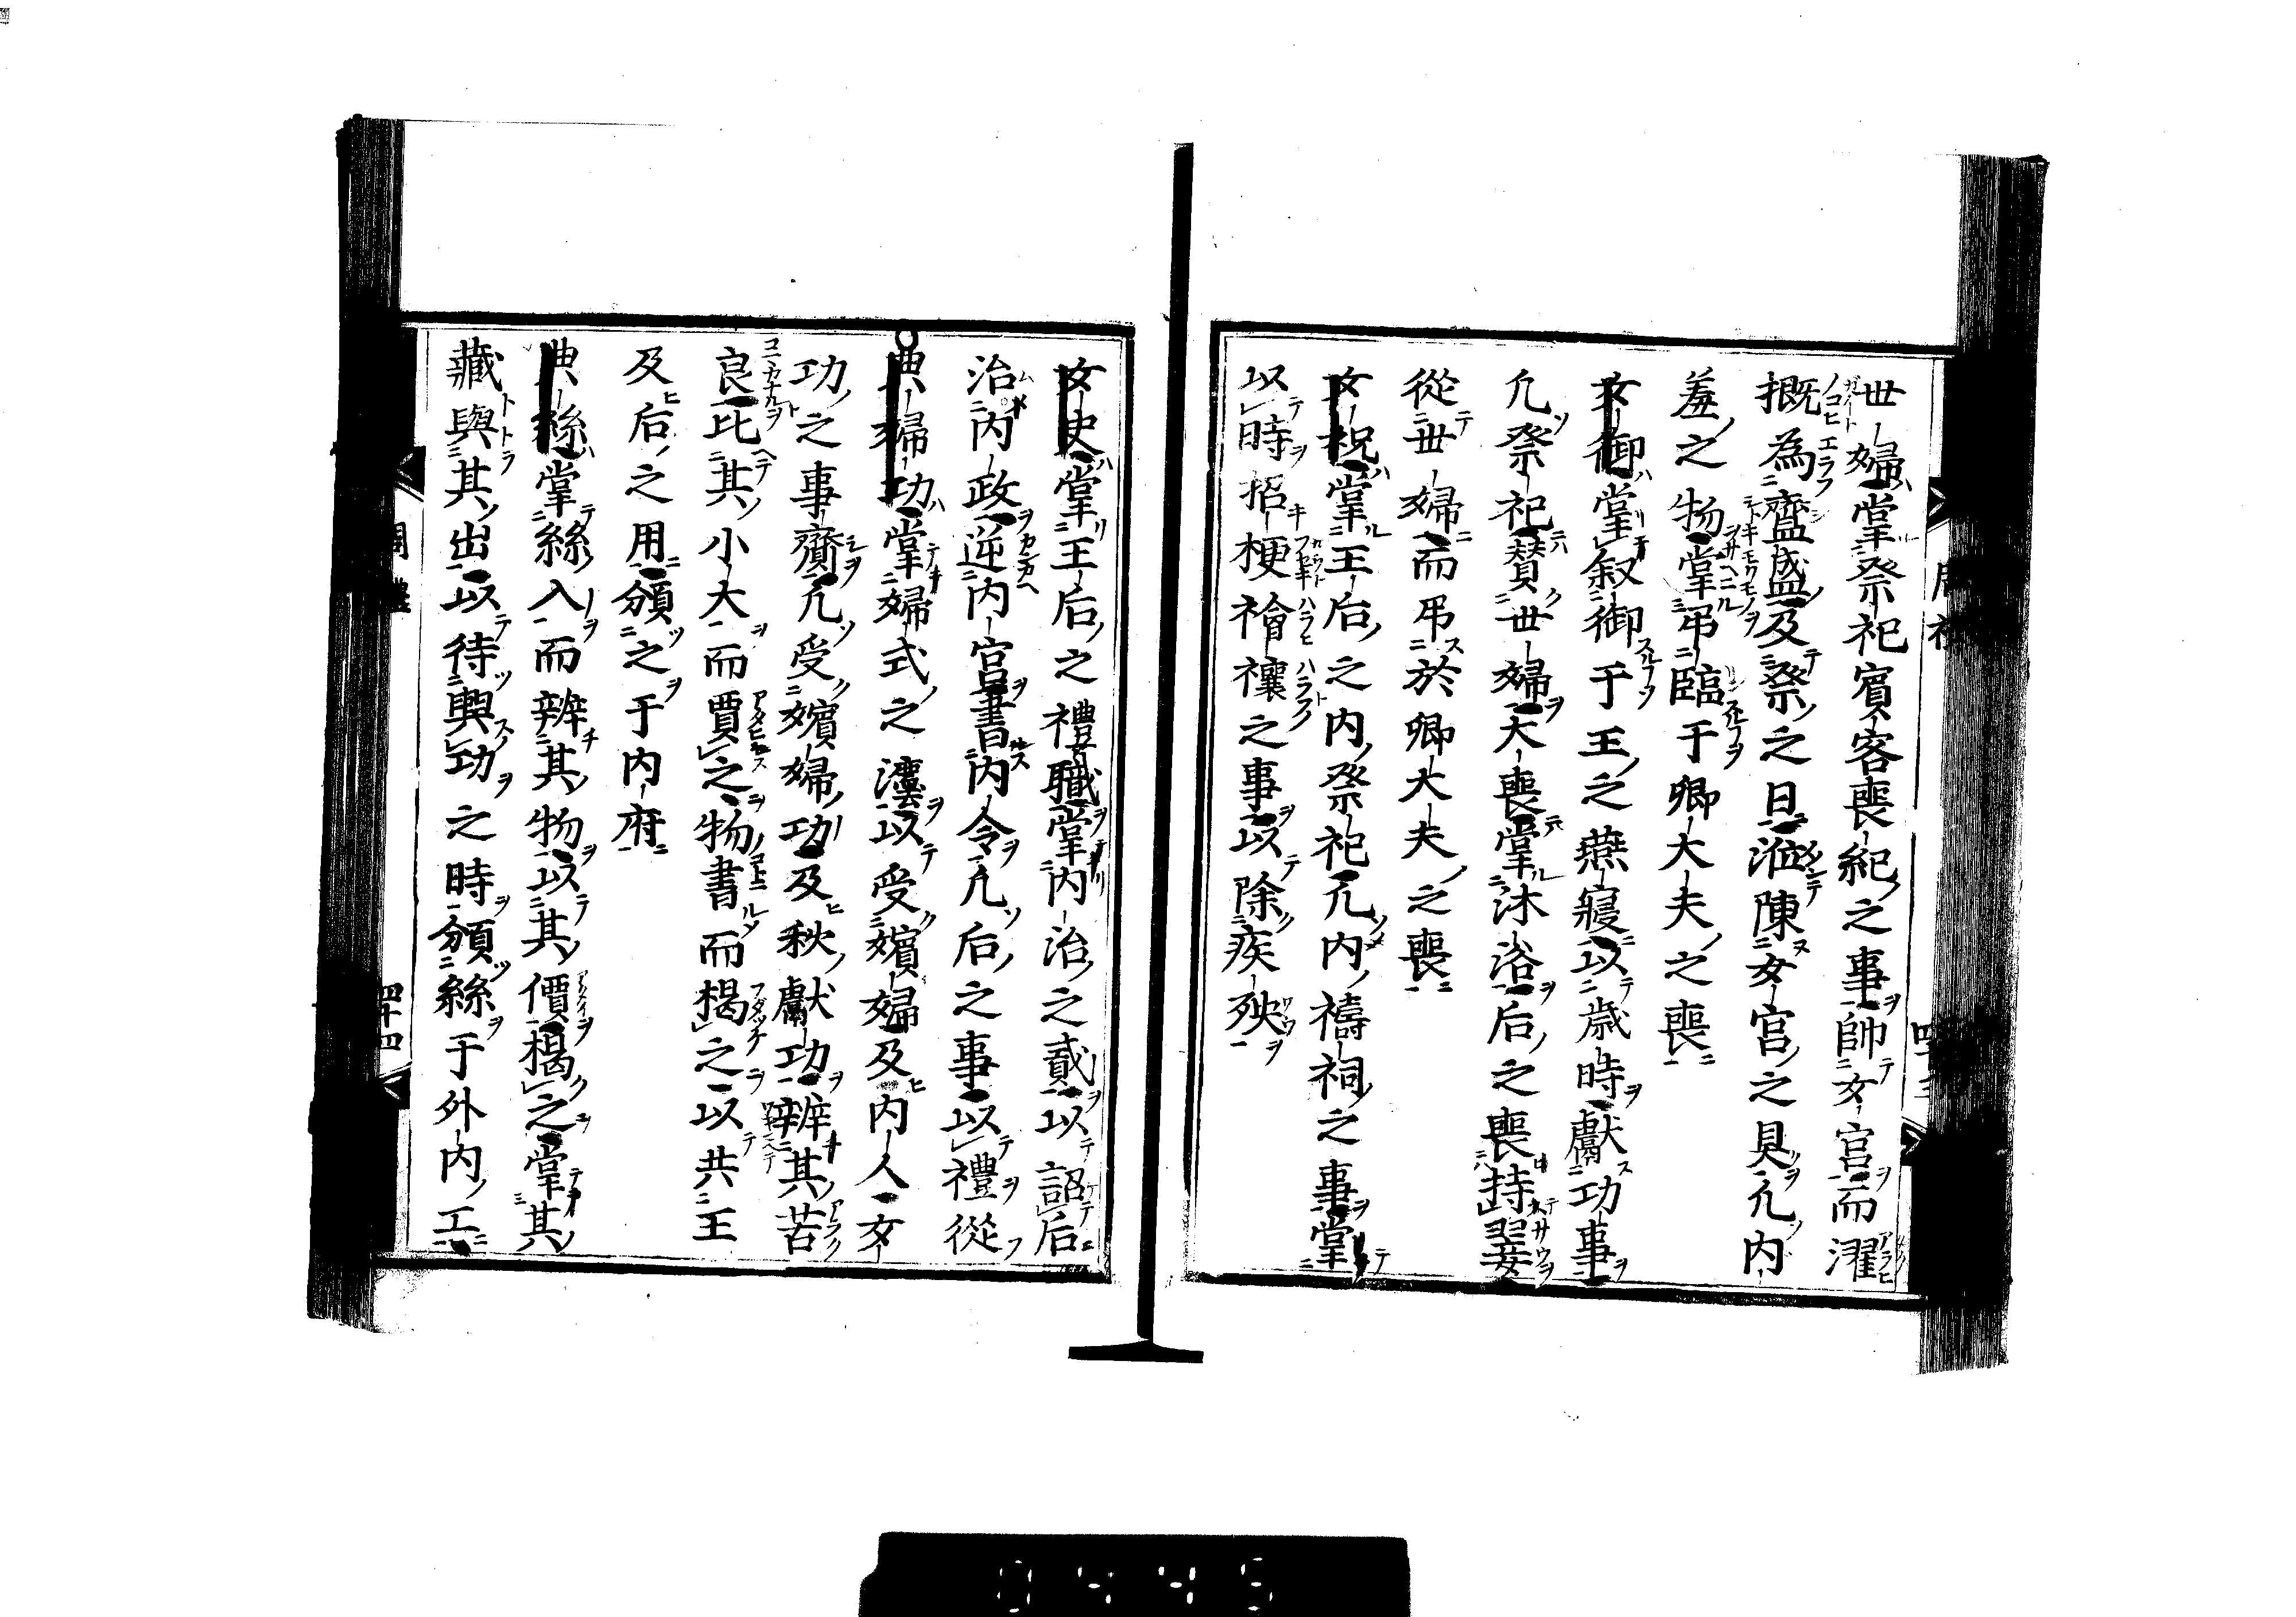 世婦掌祭祀賓客喪紀之事帥女官而濯
摡為齍盛及祭之日涖陳女官之具凢内
羞之物掌弔臨于卿大夫之喪
女御掌叙御于王之燕寢以歳時獻功事
凢祭祀賛世婦大喪掌沐浴后之喪持翣
從世婦而弔於卿大夫之喪
女祝掌王后之内祭祀凢内禱祠之事掌
以時招梗禬禳之事以除疾殃
女史掌王后之禮職掌内治之貳以詔后
治内政逆内官書内令凢后之事以禮從
典婦功掌婦式之灋以受嬪婦及内人女
功之事齎凢受嬪婦功及秋獻功辨其苦
良比其小大而賈之物書而楬之以共王
及后之用頒之于内府
典絲掌絲入而辨其物以其價楬之掌其
藏與其出以待興功之時頒絲于外内工
周禮
四十四
0445